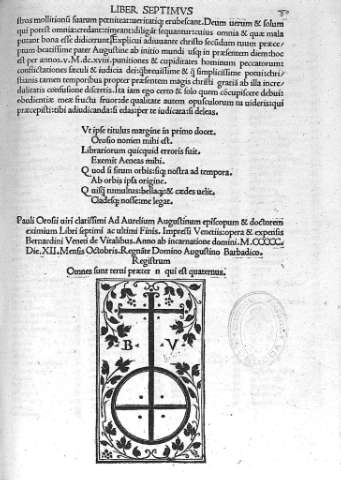 LIBER SEPTIMVS
stros mollitionū suarum pœniteat: ueritatisq; erubescant. Deum uerum & solum
qui potest omnia: credant: timeant: diligāt sequantur: cuius omnia & quæ mala
putant bona esse didicerunt. Explicui adiuuante christo secūdum tuum præce/
ptum beatissime pater Augustine ab initio mundi usq; in præsentem diem: hoc
est per annos. v. M. dc. xviii. punitiones & cupiditates hominum peccatorum:
conflictationes sæculi & iudicia dei: q̃breuissime & q̃ simplicissime potui: chri/
stianis tamen temporibus propter præsentem magis christi gratiā ab illa incre/
dulitatis confusione discretis. Ita iam ego certo & solo quem cōcupiscere debui:
obedientiæ meæ fructu fruor: de qualitate autem opusculorum tu uideris: qui
præcepisti: tibi adiudicanda: si edas: per te iudicata: si deleas.
Vt ipse titulus margine in primo docet.
Orosio nomen mihi est.
Librariorum quicquid erroris fuit.
Exemit Aeneas mihi.
Quod si situm orbis: siq; nostra ad tempora.
Ab orbis ipsa origine.
Quisq; tumultus: bellaq; & cædes uelit.
Cladesq; nosse: me legat.
Pauli Orosii uiri clarissimi Ad Aurelium Augustinum episcopum & doctorem
eximium Libri septimi ac ultimi Finis. Impressi Venetiis: opera & expensis
Bernardini Veneti de Vitalibus. Anno ab incarnatione domini. M.CCCCC.
Die. XII. Mensis Octobris. Regnāte Domino Augustino Barbadico.
Registrum
Omnes sunt terni præter n qui est quaternus.
B V